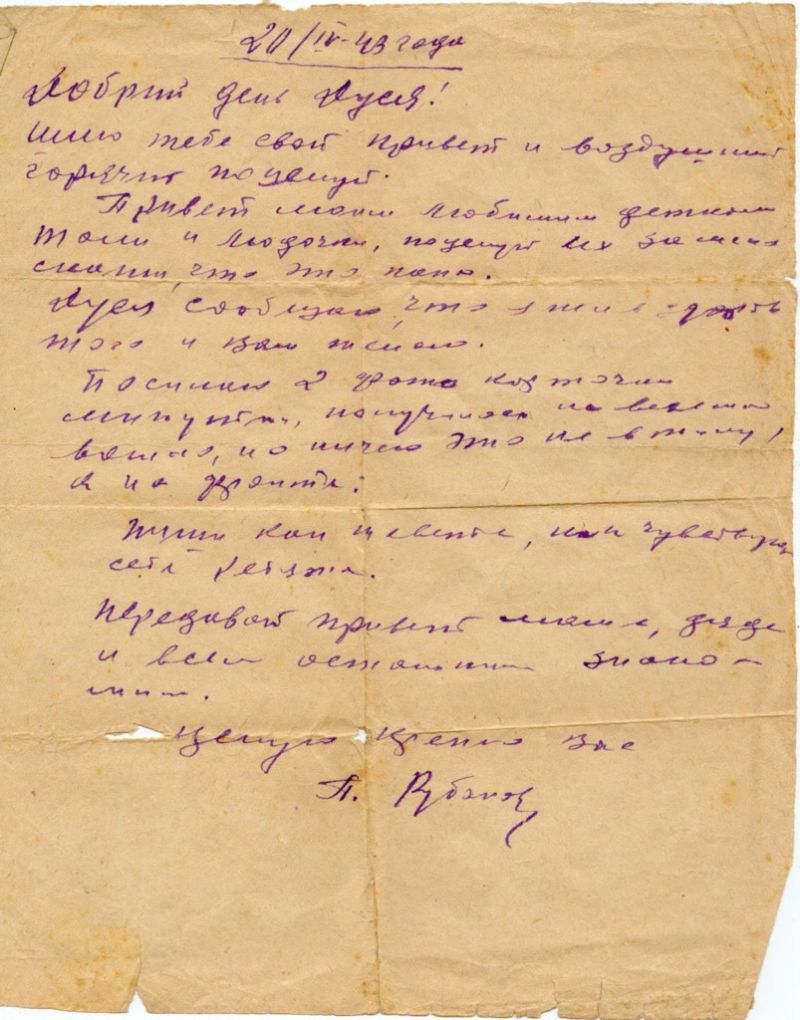 20/IV-43 года
Добрий день Дуся!
Шлю тебе свой привет и воздушний
горячий поцелуй.
Привет моим любимим деткам
Толи и Людочки, поцелуй их за меня
скажи, что это папа.
Дуся сообщаю, что я жив здоров
того и вам желаю.
Посилаю 2 фото карточки
минутки, получился не
но ничего это не в тилу,
а на фронте.
Пиши как живете, как чувствуют
себя ребятки.
Передавай привет маме, дяде
и всем остальним знако-
мим.
Целую крепко вас
П. Рубанов